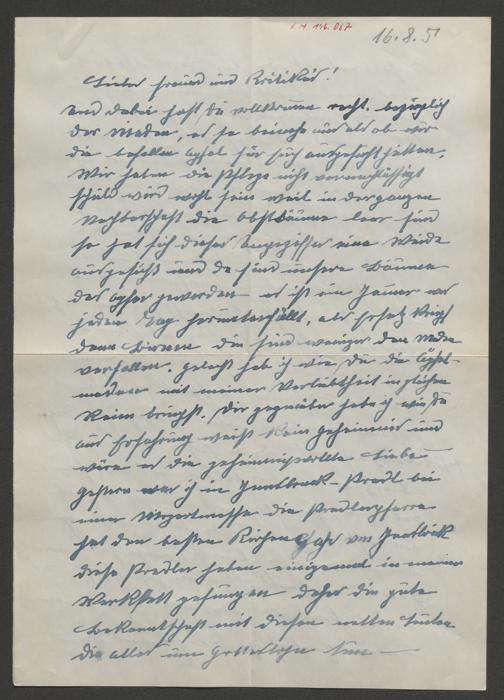 16.8.51
Lieber Freund und Kritiker!
und dabei hast Du vollkommen recht. bezüglich
der Maden, es ist beinahe als ob wir
die befallen Äpfel für sich ausgesucht hätten.
Wir haben die Pflege nicht vernachlässigt
schuld wird wohl sein weil in der ganzen
Nachbarschaft die Obstbäume leer sind
so hat sich dieses Ungeziffer eine Weide
ausgesucht und da sind unsere Bäume
das Opfer geworden es ist ein Jammer was
jeden Tag herunterfällt, als ersatz
dann Birnen die sind weniger den Maden
verfallen. gelacht hab ich wie Du die Apfel-
maden mit meiner Verliebtheit in gleichen
Reim bringst. Dir gegenüber habe ich wie Du
aus Erfahrung weißt kein geheimnis und
wäre es die geheimnisvollste Liebe
gestern war ich in Innsbruck-Pradl bei
einer Mozartmesse die Pradlerpfarre
hat den besten Kirchenchor von Innsbruck
diese Pradler haben einigemal in meiner
Werkstatt gesungen daher die gute
Bekanntschaft mit diesen netten Leuten
die alles um Gotteslohn tun